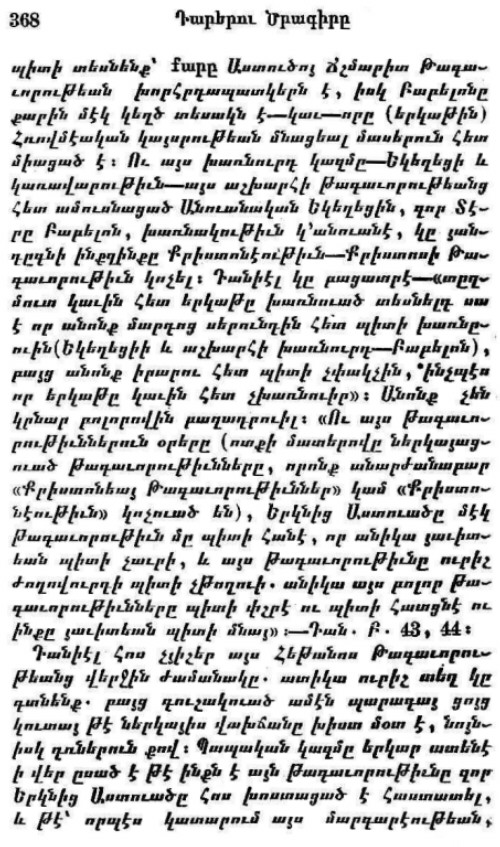 368 Դարերու Ծրագիրը
պիտի տեսնենք՝ քարը Աստուծոյ Ճշմարիտ Թագա-
ւորութեան խորհրդապատկերն է, իսկ Բաբելոնը
քարին մէկ կեղծ տեսակն է—կաւ—որը (երկաթին)
Հռովմէական կայսրութեան մնացեալ մասերուն հետ
միացած է։ Ու այս խառնուրդ կազմը—Եկեղեցի և
կառավարութիւն—այս աշխարհի թագաւորութեանց
հետ ամուսնացած Անուանական Եկեղեցին, զոր Տէ-
րը Բաբելոն, խառնակութիւն կ՚անուանէ, կը յան-
դըգնի ինքզինքը Քրիստոնէութիւն—Քրիստոսի Թա-
գաւորութիւն կոչել։ Դանիէլ կը բացատրէ—«տըղ-
մուտ կաւին հետ երկաթը խառնուած տեսներդ սա
է որ անոնք մարդոց սերունդին հետ պիտի խառնը-
ուին(Եկեղեցիի և աշխարհի խառնուրդ—Բաբելոն),
բայց անոնք իրարու հետ պիտի չփակչին, ինչպէս
որ երկաթը կաւին հետ չխառնուիր»։ Անոնք չեն
կրնար բոլորովին բաղադրուիլ։ «Ու այս թագաւո-
րութիւններուն օրերը (ոտքի մատերովը ներկայաց-
ուած թագաւորութիւնները, որոնք անարժանաբար
«Քրիստոնեայ Թագաւորութիւններ» կամ «Քրիստո-
նէութիւն» կոչուած են), Երկնից Աստուածը մէկ
թագաւորութիւն մը պիտի հանէ, որ անիկա յաւիտ-
եան պիտի չաւրի, և այս թագաւորութիւնը ուրիշ
ժողովուրդի պիտի չթողուի. անիկա այս բոլոր թա-
գաւորութիւնները պիտի փշրէ ու պիտի հատցնէ ու
ինքը յաւիտեան պիտի մնայ»։—Դան. Բ. 43, 44։
Դանիէլ հոս չյիշեր այս Հեթանոս Թագաւորու-
թեանց վերջին ժամանակը. ատիկա ուրիշ տեղ կը
գտնենք. բայց գուշակուած ամէն պարագայ ցոյց
կուտայ թէ ներկայիս վախճանը խիստ մօտ է, նոյն-
իսկ դռներուն քով։ Պապական կազմը երկար ատենէ
ի վեր ըսած է թէ ինքն է այն թագաւորութիւնը զոր
Երկնից Աստուածը հոս խոստացած է հաստատել,
և թէ՝ որպէս կատարում այս մարգարէութեան,